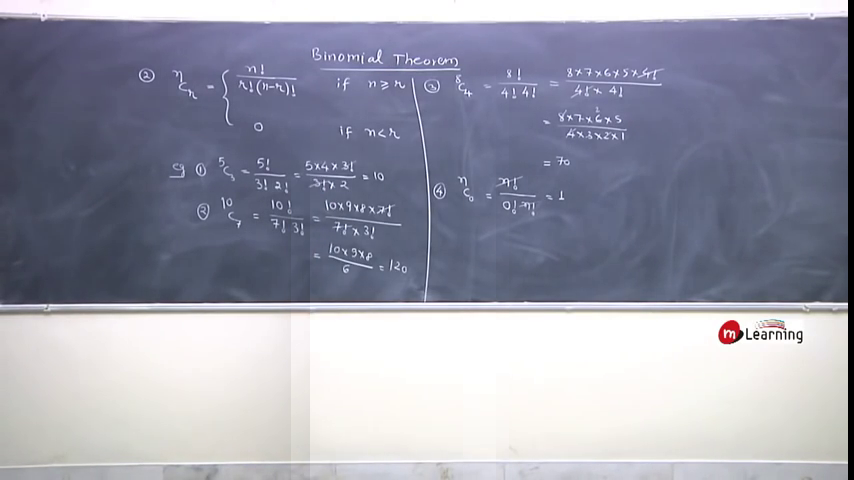 Binomial Theorem
② ⁿCᵣ = { n! / r!(n-r)! if n ≥ r
0 if n < r
eg ① ⁵C₃ = 5! / 3! 2! = 5×4×3! / 3!×2 = 10
② ¹⁰C₇ = 10! / 7! 3! = 10×9×8×7! / 7!×3!
= 10×9×8 / 6 = 120
③ ⁸C₄ = 8! / 4! 4! = 8×7×6×5×4! / 4!×4!
= 8×7×6×5 / 4×3×2×1
= 70
④ ⁿC₀ = n! / 0! n! = 1
m Learning